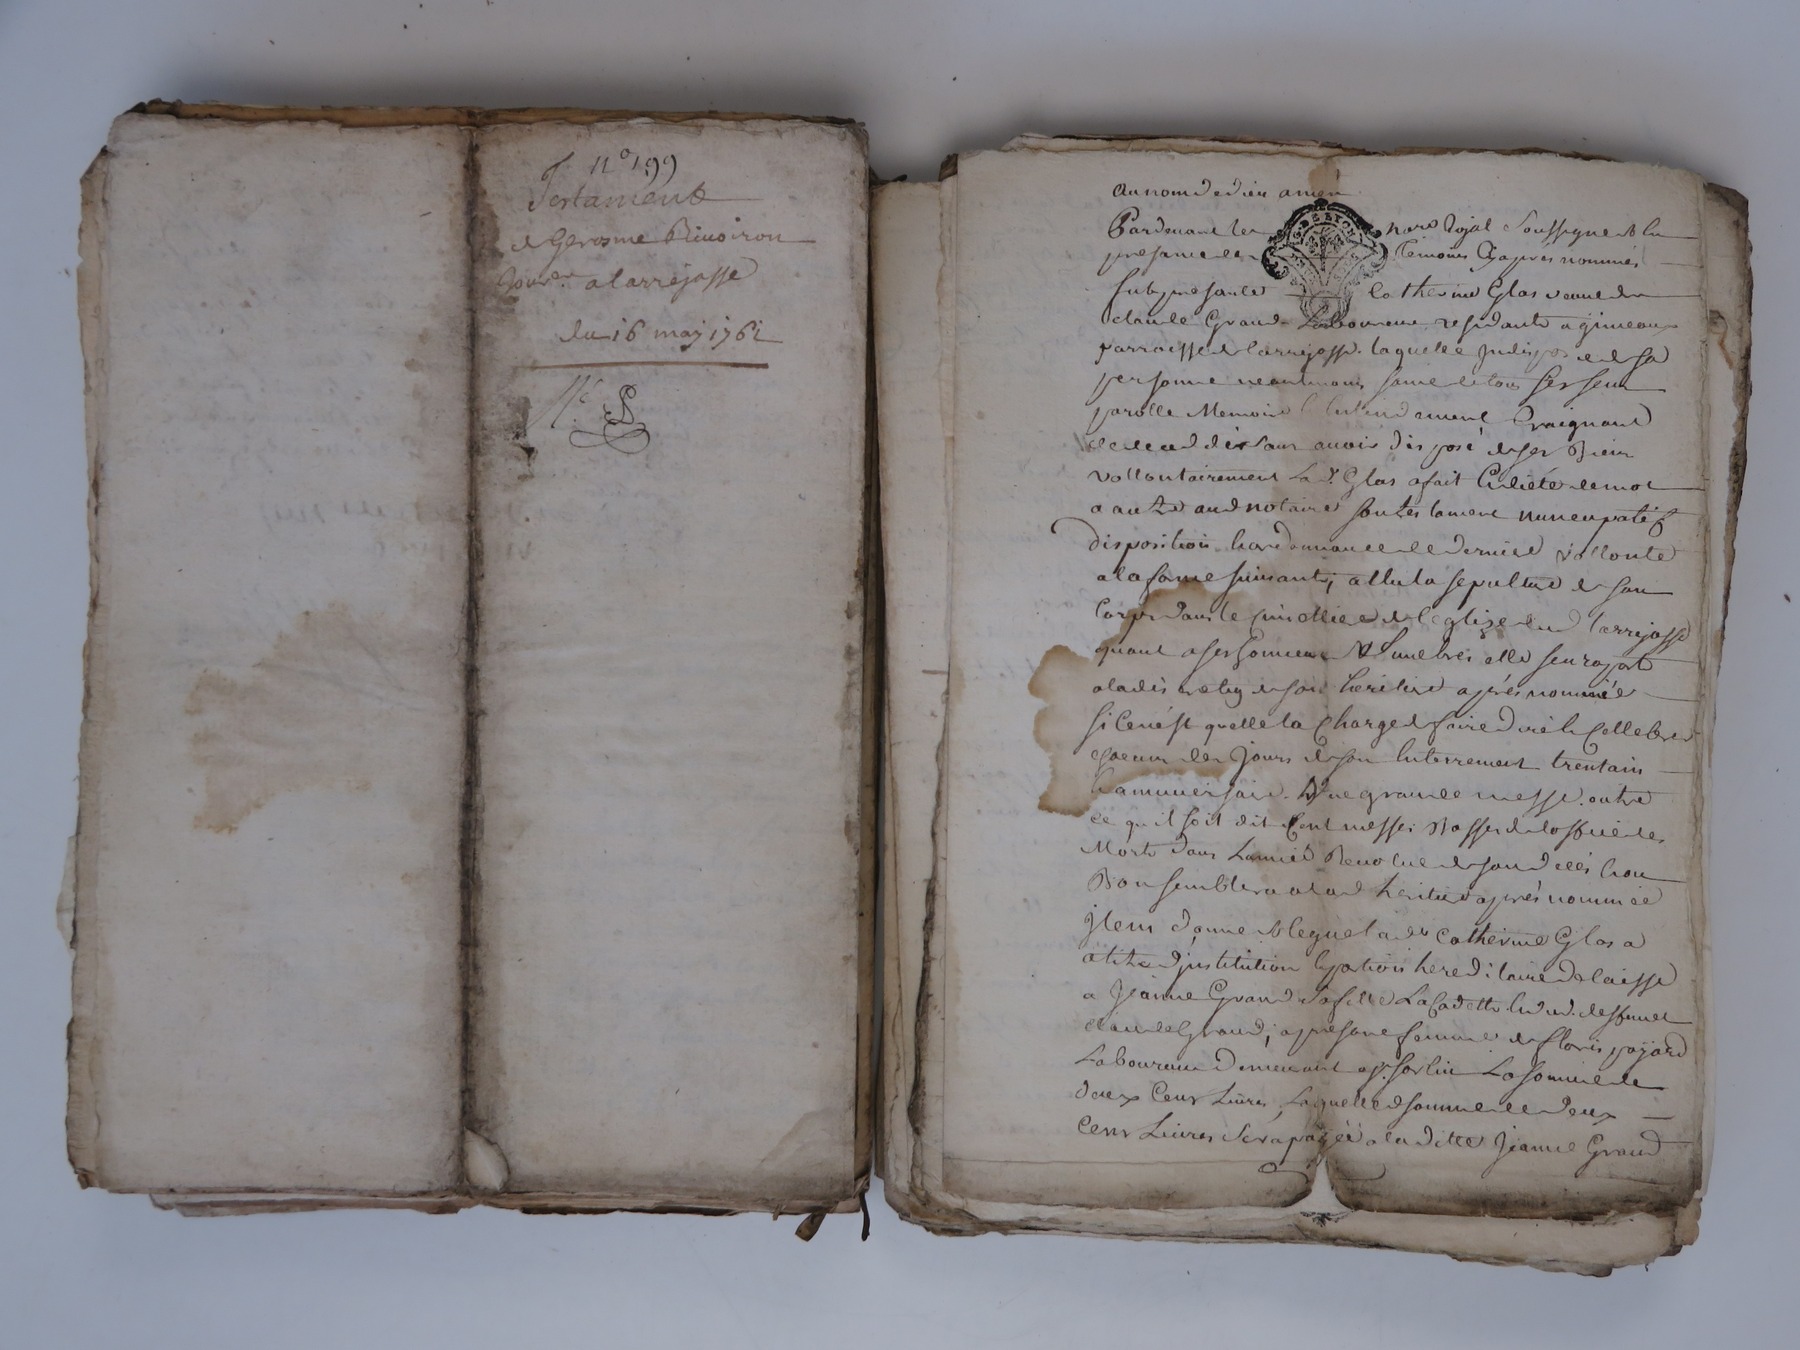 n.º 199
Testament
de Gerosme Rivoiron
a larrejasse
du 16 may 1761
au nom de dieu amen
Pardevant le nore Royal soussigné & en
presance des temoins Cy apres nommés
fut presante Catherine Glas veuve de
claude Grand Laboureur residante a gimeaux
parroisse de larrejasse. laquelle Indisposée de sa
personne neantmoins saine de tous ses sens
parolle Memoire & Entendement Craignant
de deceder sans avoir disposé de ses Biens
vollontairement La d. Glas a fait
aud notaire son testament nuncupatif
disposition hordonnance de derniere vollonté
a la forme suivante; a Elu la sepulture de son
Corps dans le cimettiere de leglize dud larrejasse
quant a ses honneurs funebres elle sen raporte
a la discretion de son heritiere après nommée
si ce nest quelle la Charge de faire dire & Cellebrer
chacun des Jours de son Enterrement trentain
& anniversaire. Une grande messe. outre
ce quil soit dit Cent messes Basses de loffice des
Morts dans Lannée Revolue de son decés hou
Bon semblera a lad heritiere après nommée
Item donne & legue lad. Catherine Glas a
a titre dinstitution & portion hereditaire delaisse
a Jeanne Grand sa fille La Cadette & dud. deffunt
claude Grand, a presant femme de floris payard
Laboureur demeurant a St. sorlin La somme de
deux Cens Livres, laquelle somme de deux
Cens Livres sera payée a la ditte Jeanne Grand